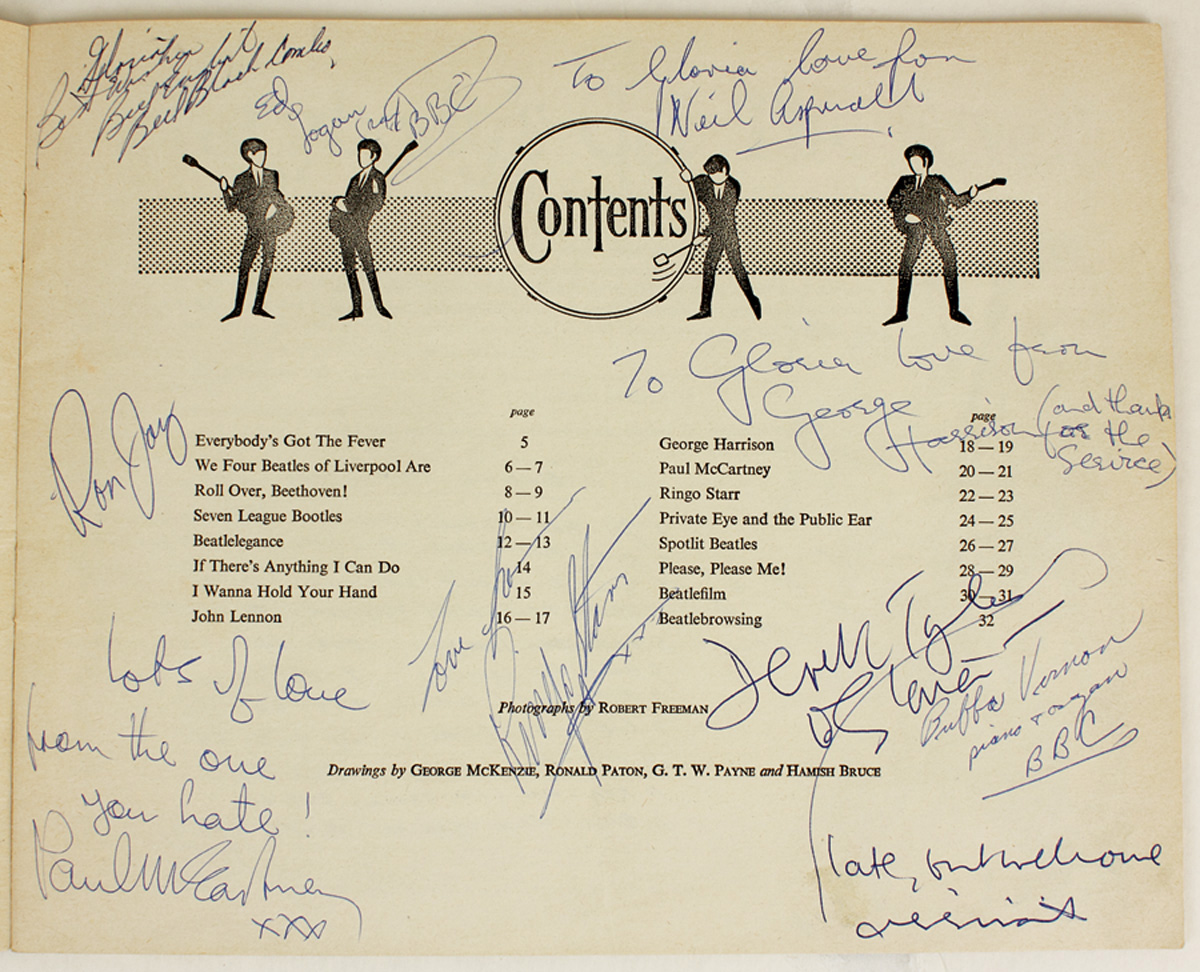 Best Wishes
To Gloria love from
Neil Aspinall
Contents
To Gloria love from
George
Harrison (and thanks
for the
Service)
Ron Jay
page
Everybody's Got The Fever 5
We Four Beatles of Liverpool Are 6—7
Roll Over, Beethoven! 8—9
Seven League Bootles 10—11
Beatlelegance 12—13
If There's Anything I Can Do 14
I Wanna Hold Your Hand 15
John Lennon 16—17
page
George Harrison 18—19
Paul McCartney 20—21
Ringo Starr 22—23
Private Eye and the Public Ear 24—25
Spotlit Beatles 26—27
Please, Please Me! 28—29
Beatlefilm 30—31
Beatlebrowsing 32
love from
xx
Lots of love
from the one
you hate!
Paul McCartney
xxx
Photographs by ROBERT FREEMAN
Drawings by GEORGE MCKENZIE, RONALD PATON, G. T. W. PAYNE and HAMISH BRUCE
Derek
Vernon
piano & organ
BBC
late, but welcome